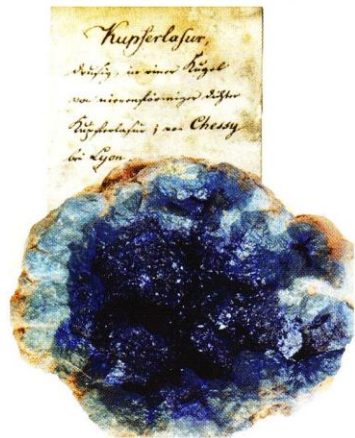 Kupferlasur,
drusig, in einer Kugel
von nierenförmiger dichter
Kupferlasur; von Chessy
bei Lyon